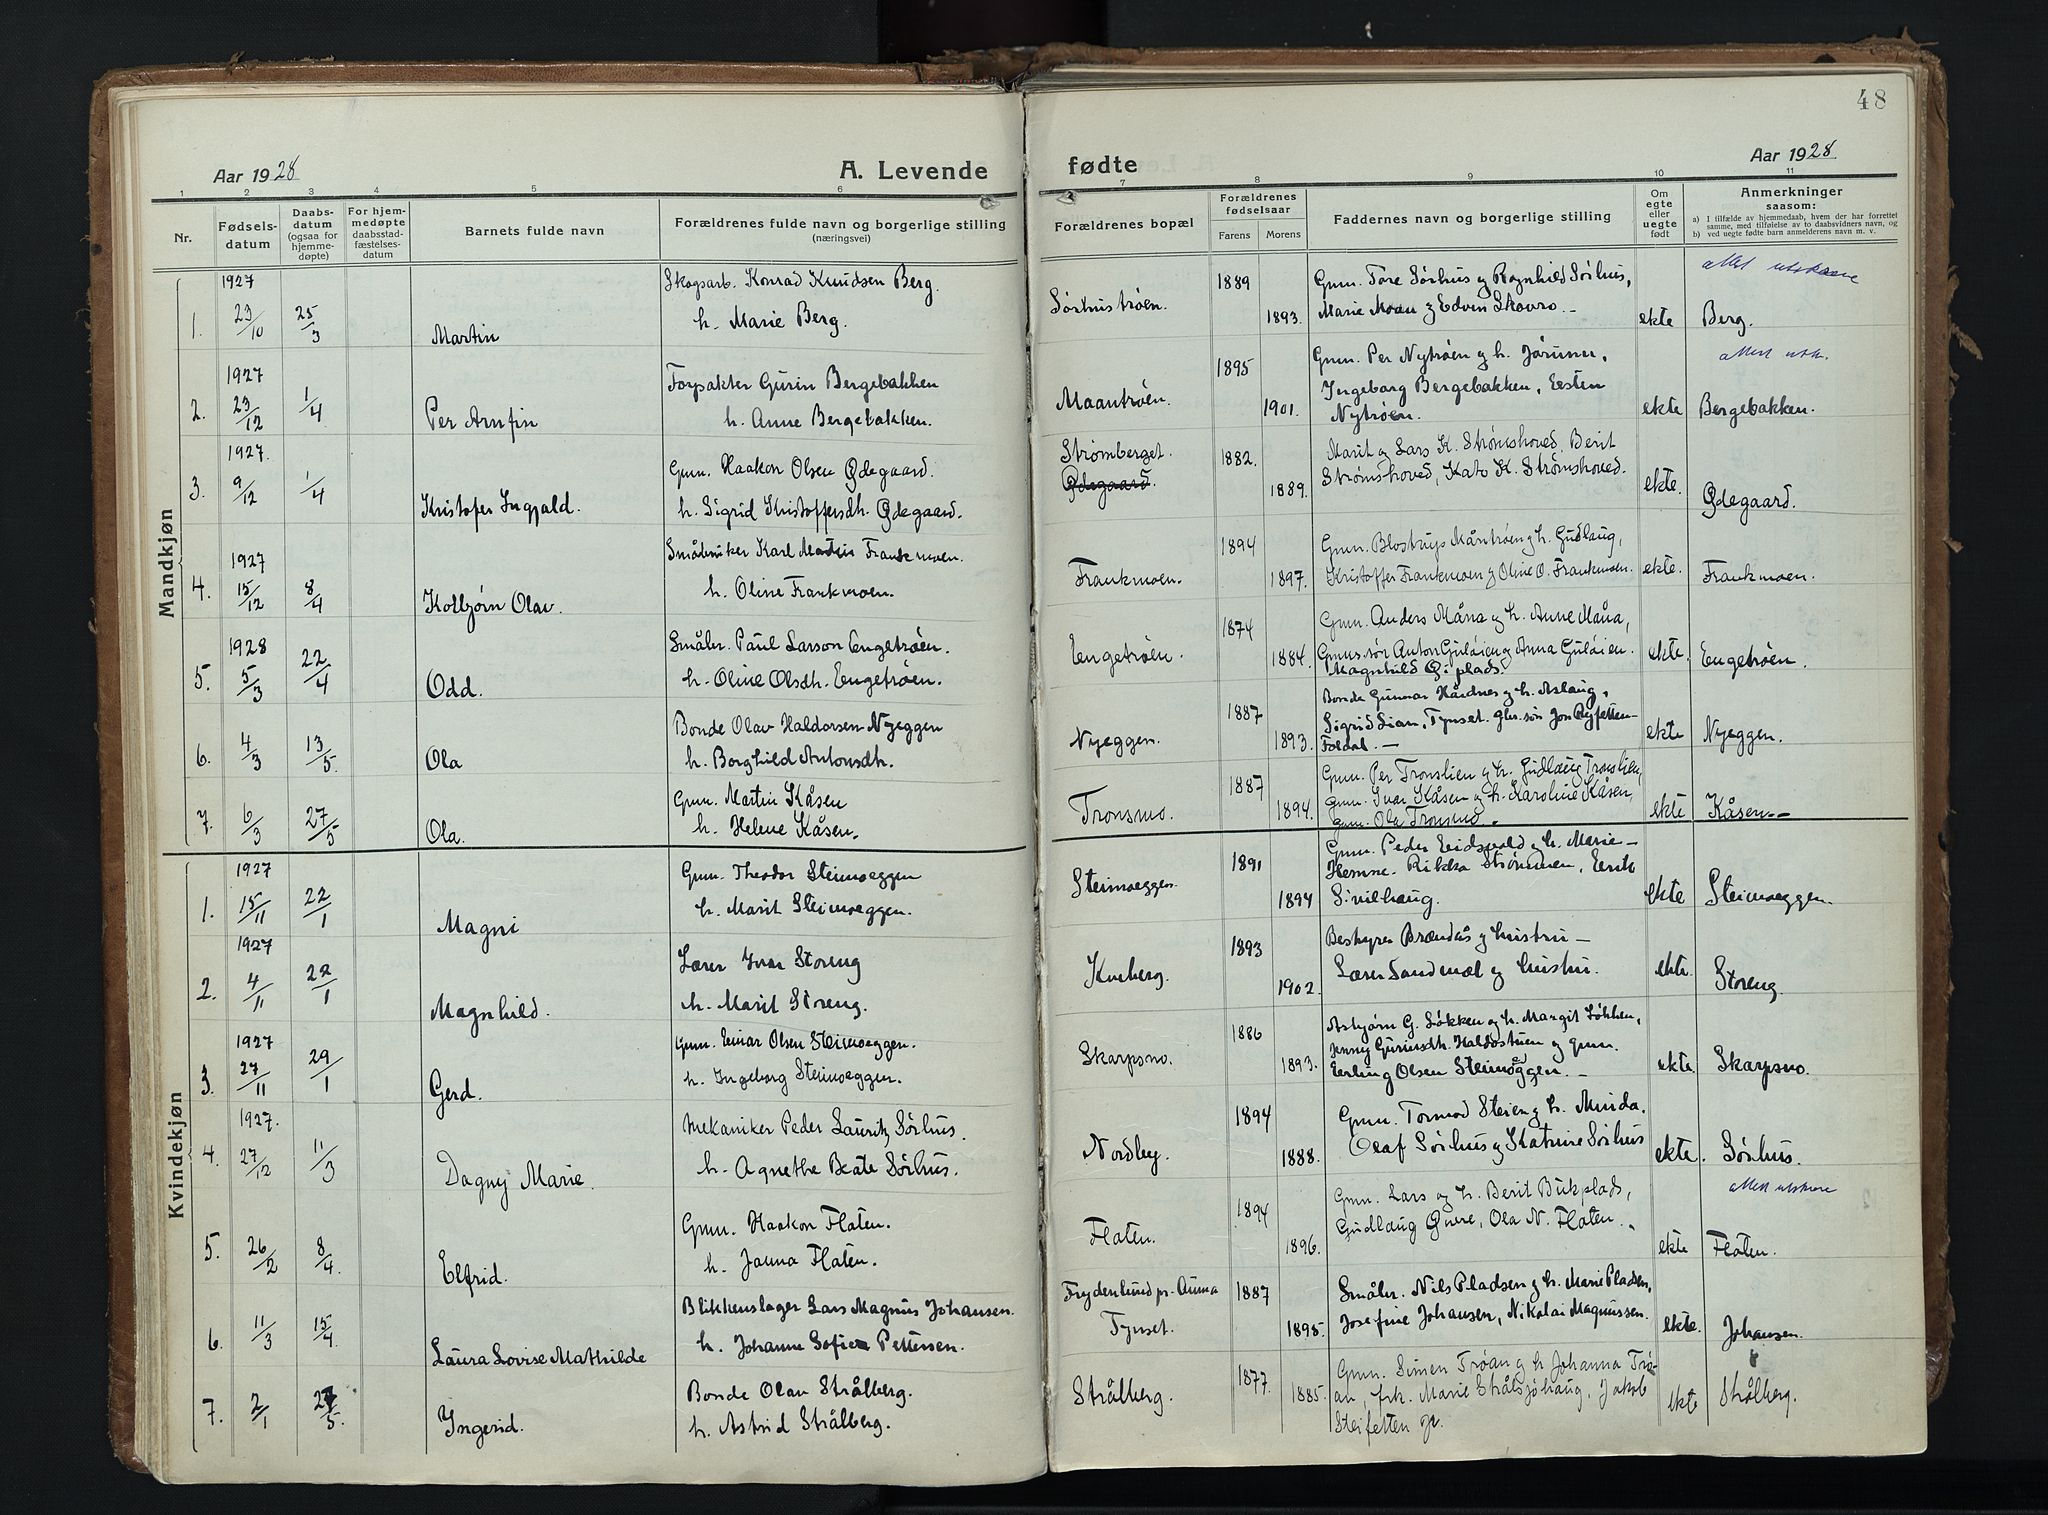 48
Aar 1928
A. Levende
fødte
Aar 1928
1 2 3 4 5 6 7 8 9 10 11
Nr.
Fødsels-
datum
Daabs-
datum
(ogsaa for
hjemme-
døpte)
For hjem-
medøpte
daabsstad-
fæstelses-
datum
Barnets fulde navn
Forældrenes fulde navn og borgerlige stilling
(næringsvei)
Forældrenes bopæl
Forældrenes
fødselsaar
Farens Morens
Faddernes navn og borgerlige stilling
Om
egte
eller
uegte
født
Anmerkninger
saasom:
a) I tilfælde av hjemmedaab, hvem der har forrettet
samme, med tilføielse av to daabsvidners navn, og
b) ved uegte fødte barn anmelderens navn m. v.
Mandkjøn
1927
1. 23/10 25/3 Martin
Skogsarb. Konrad Knudsen Berg.
h. Marie Berg.
Sørhustrøen. 1889 1893.
Gmn. Tore Sørhus og Ragnhild Sørhus,
Marie Moan og Edvin Skovro. –
ekte Berg.
attest utskrevne
1927
2. 23/12 1/4 Per Arnfin
Forpakter Gurin Bergebakken
h. Anne Bergebakken.
Maantrøen. 1895 1901.
Gmn. Per Nytrøen og h. Jørunn,
Ingeborg Bergebakken, Eesten
Nytrøen.
ekte Bergebakken.
attest utsk.
1927.
3. 9/12 1/4 Kristofer Ingjald.
Gmn. Haakon Olsen Ødegaard.
h. Sigrid Kristoffersdh. Ødegaard.
Strømberget.
Ødegaard. 1882. 1889.
Marit og Lars K. Strømshoved, Berit
Strømshoved, Kato K. Strømshoved.
ekte. Ødegaard.
1927
4. 15/12 8/4 Kolbjørn Olav.
Småbruker Karl Martin Frankmoen.
h. Oline Frankmoen.
Frankmoen. 1894 1897.
Gmn. Måntrøen og h. Gudlaug,
Kristoffer Frankmoen og Oline O. Frankmoen.
ekte. Frankmoen.
1928
5. 5/3 22/4 Odd.
Småbr. Paul Larson Engetrøen.
h. Oline Olsdh. Engetrøen.
Engetrøen. 1874 1884.
Gmn. Anders Måna og h. Anne Måna,
Gmns.søn Anton Guløien og Anna Guløien.
Magnhild plads.
ekte. Engetrøen.
6. 4/3 13/5. Ola
Bonde Olav Haldorsen Nyeggen
h. Borghild Antonsdh.
Nyeggen. 1887 1893.
Bonde Gunnar Hårdnes og h. Aslaug,
Sigrid Lian, Tynset. gbr. søn Jon
Foldal. –
ekte Nyeggen.
7. 6/3 27/5 Ola.
Gmn. Martin Kåsen
h. Helene Kåsen.
Tronsmo. 1887 1894.
Gmn. Per Tronslien og h. Gudlaug Tronslien,
gmn. Ivar Kåsen og h. Karoline Kåsen,
gmn. Ola Tronsmo.
ekte Kåsen. –
Kvindekjøn
1927
1. 15/11 22/1 Magni
Gmn. Theodor Steimoeggen
h. Marit Steimoeggen.
Steimoeggen. 1891 1894
Gmn. Peder Eidsvold og h. Marie –
Hemne. Rikka Strømmen, Eerik
Sivilhaug.
ekte Steimoeggen.
1927
2. 4/11 22/1 Magnhild.
Lærer Ivar Storeng
h. Marit Storeng.
Kveberg. 1893 1902.
Bestyrer Brændås og hustru –
Lærer Sandmæl og hustru.
ekte. Storeng.
1927
3. 27/11 29/1 Gerd.
Gmn. Einar Olsen Steimoeggen.
h. Ingeborg Steimoeggen.
Skarpsno. 1886 1893.
Asbjørn G. Løkken og h. Margit Løkken,
Jenny Gunnesdh. Haldostuen og gmn.
Eerling Olsen Steimoeggen. –
ekte. Skarpsno.
1927.
4. 27/12 11/3 Dagny Marie.
Mekaniker Peder Lauritz Sørhus.
h. Agnethe Beate Sørhus.
Nordby. 1894 1888.
Gmn. Tormod Steien og h. Minda.
Olaf Sørhus og Katrine Sørhus
ekte. Sørhus.
5. 26/2 8/4. Elfrid.
Gmn. Haakon Flaten.
h. Janna Flaten.
Flaten. 1894 1896.
Gmn. Lars og h. Berit Bukplads,
Gudlaug Øwre, Ola N. Flaten.
ekte Flaten.
attest utskrevne
6. 11/3 15/4. Laura Lovise Mathilde
Blikkenslager Lars Magnus Johansen.
h. Johanne Sofie Pettersen.
Frydenlund pr. Auma
Tynset. 1887 1895.
Småbr. Nils Pladsen og h. Marie Pladsen,
Josefine Johansen, Nikolai Magnussen.
ekte. Johansen.
7. 2/1 27/5. Ingerid.
Bonde Olav Strålberg.
h. Astrid Strålberg.
Strålberg. 1877. 1885.
Gmn. Simen Trøan og h. Johanna Trø-
an, frk. Marie Strålsjøhaug, Jakob
Steifetten gr.
ekte Strålberg.